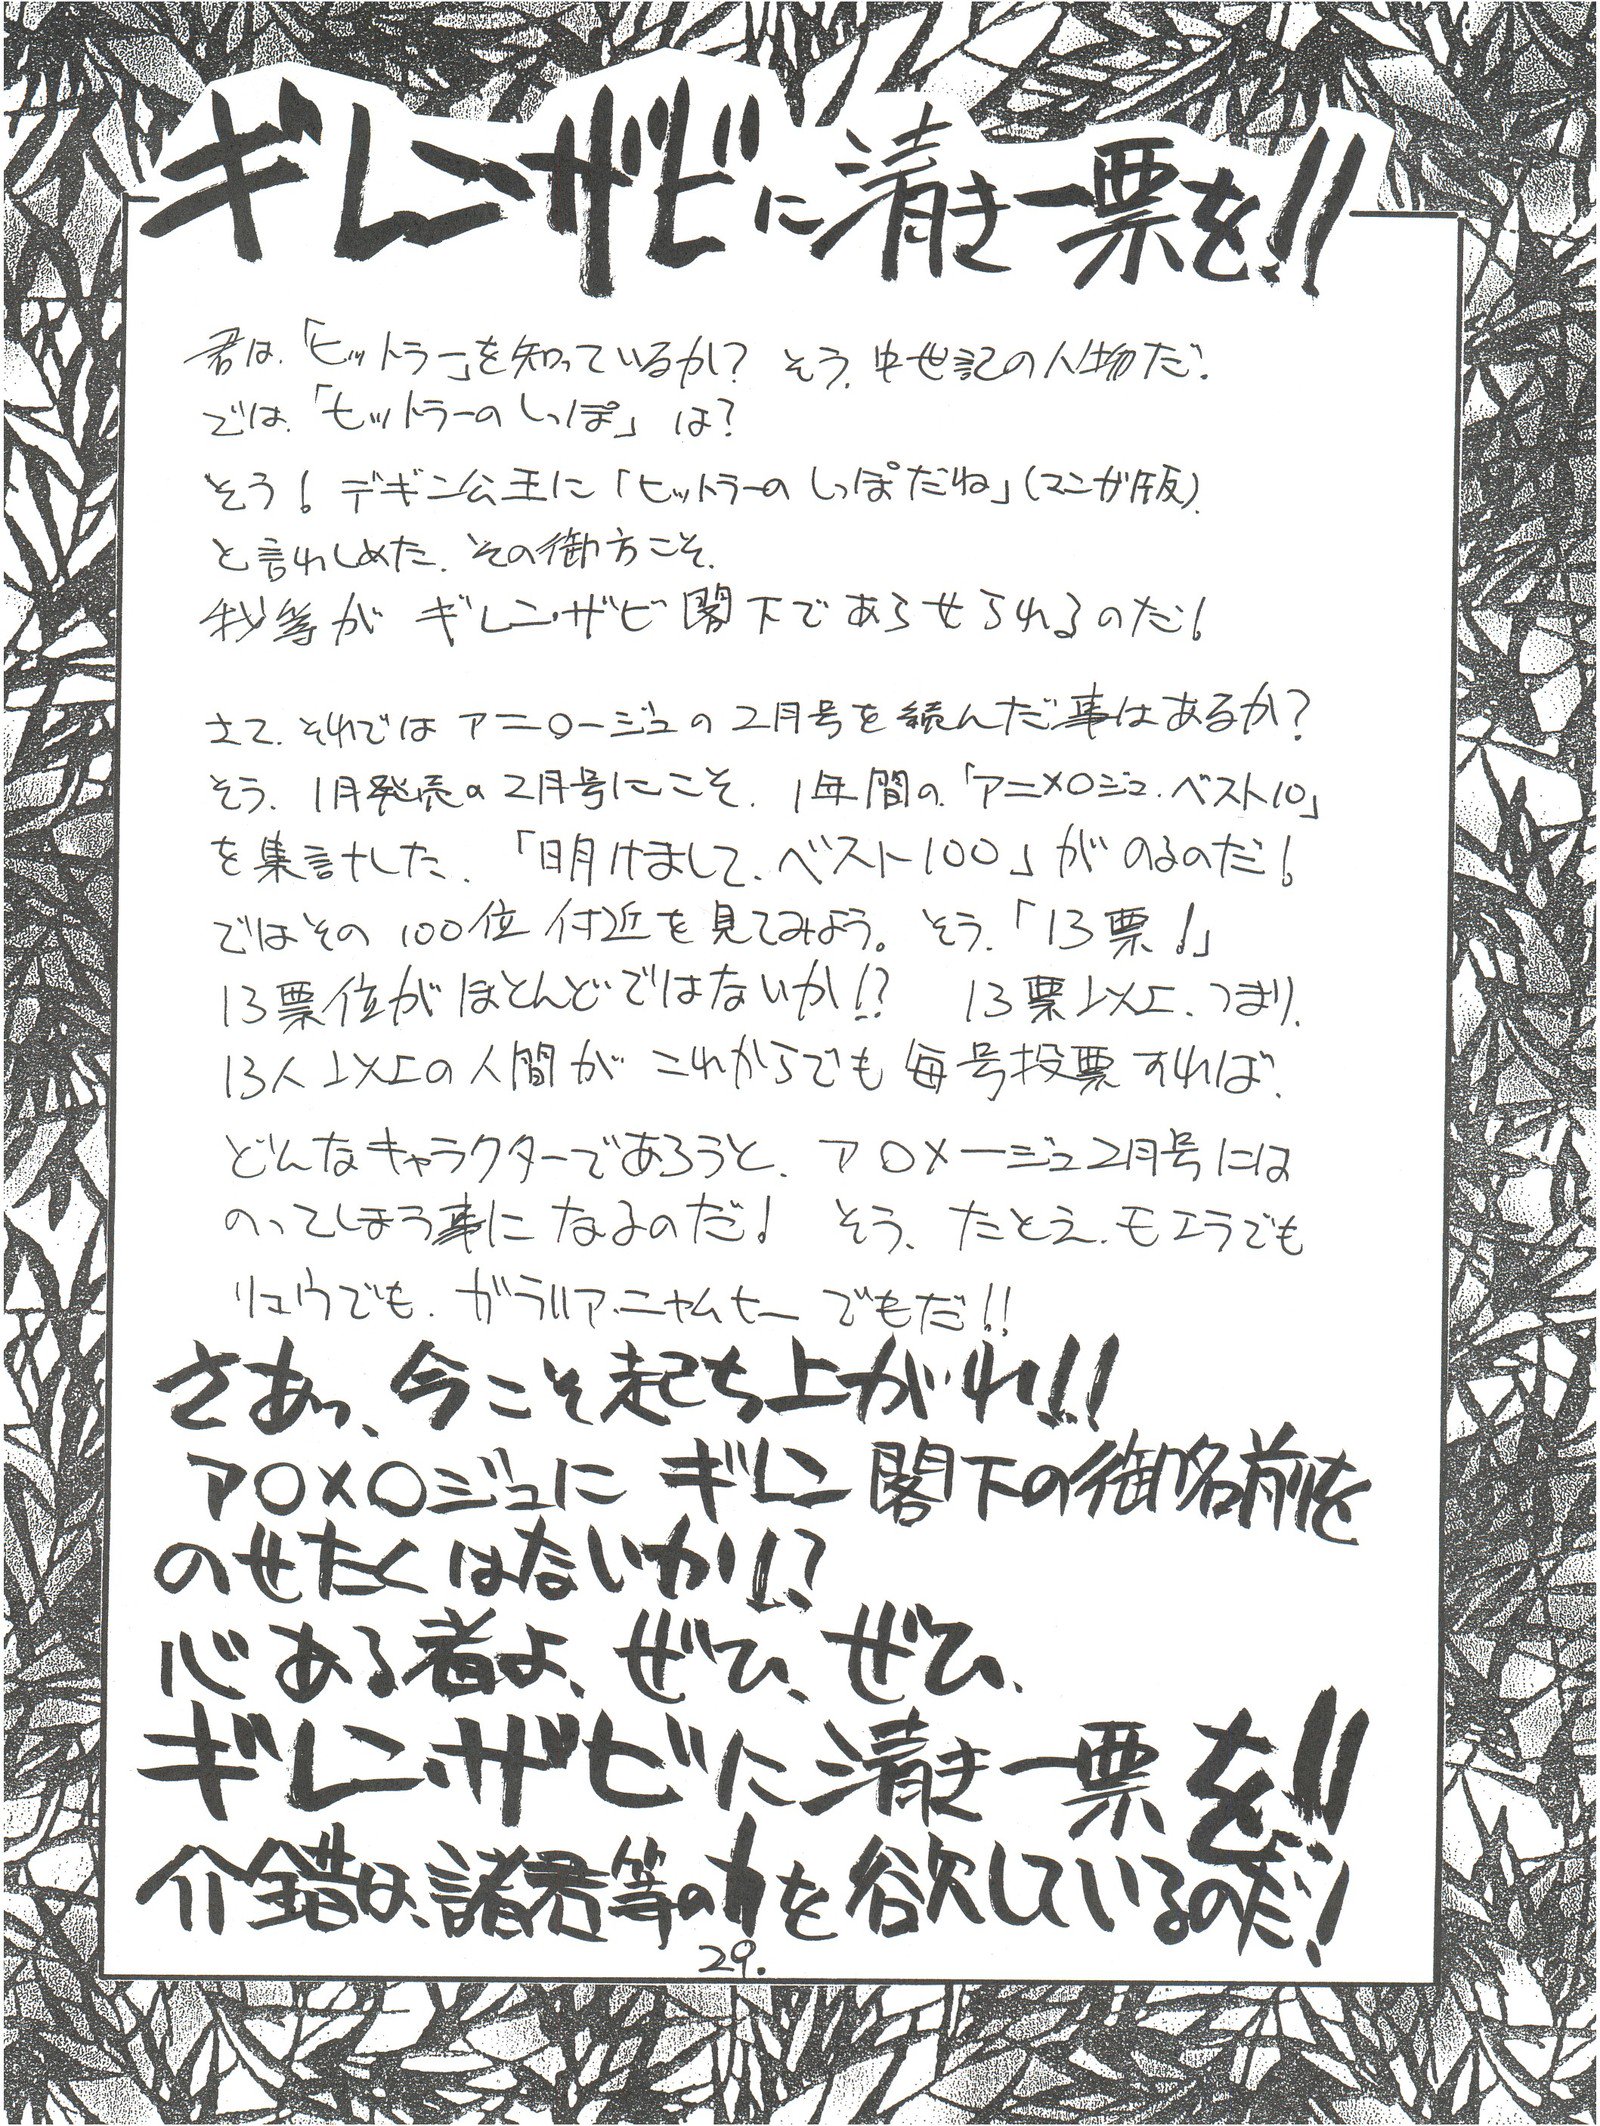 ギレン・ザビに清き一票を!!
君は、「ヒットラー」を知っているか? そう、中世記の人物だ!
では、「ヒットラーのしっぽ」は?
そう! デギン公王に「ヒットラーのしっぽだね」(マンガ版)
と言わしめた、その御方こそ、
我等が ギレン・ザビ閣下であらせられるのだ!
さて、それではアニ○ージュの2月号を読んだ事はあるか?
そう、1月発売の2月号にこそ、1年間の、「アニメ○ジュ・ベスト10」
を集計した、「明けまして、ベスト100」がのるのだ!
ではその100位付近を見てみよう。そう、「13票!」
13票位がほとんどではないか!? 13票以上、つまり、
13人以上の人間がこれからでも毎号投票すれば、
どんなキャラクターであろうと、ア○メージュ2月号には
のってしまう事になるのだ! そう、たとえ、モエラでも
リュウでも、ガラリア・ニャムヒーでもだ!!
さあっ、今こそ起ち上がれ!!
ア○メ○ジュにギレン閣下の御名前を
のせたくはないかり!?
心ある者よ、ぜひ、ぜひ、
ギレン・ザビに清き一票を!!
介錯は、諸君等の力を欲しているのだ!
29.